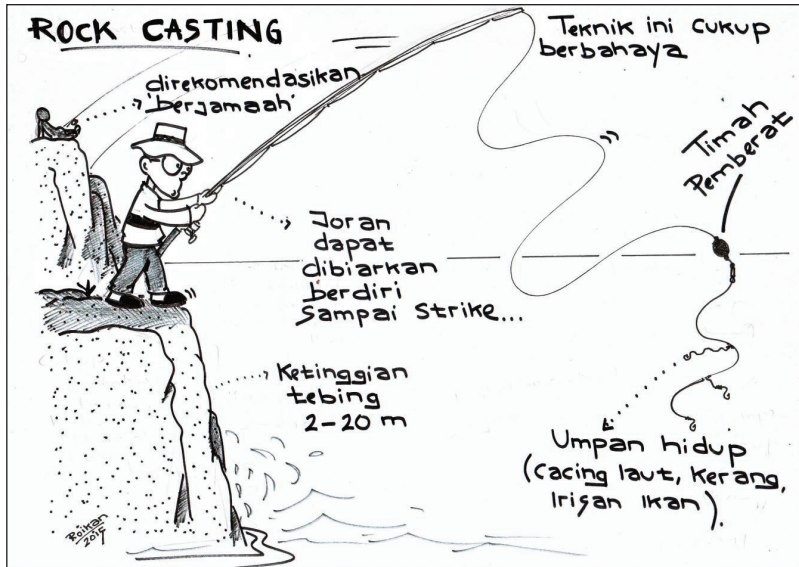 ROCK CASTING
direkomendasikan
'berjamaah'
Teknik ini cukup
berbahaya
Timah
Pemberat
Joran
dapat
dibiarkan
berdiri
sampai strike...
Ketinggian
tebing
2-20 m
Umpan hidup
(cacing laut, kerang,
Irisan Ikan).
Roikan
2015